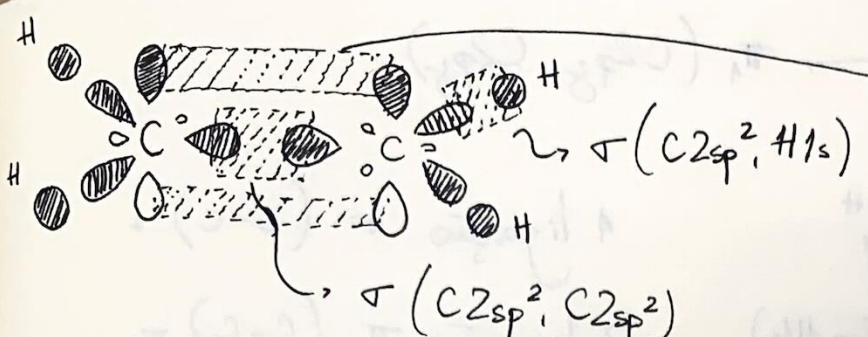 H
H
C
C
H
σ(C2sp², H1s)
H
σ(C2sp², C2sp²)